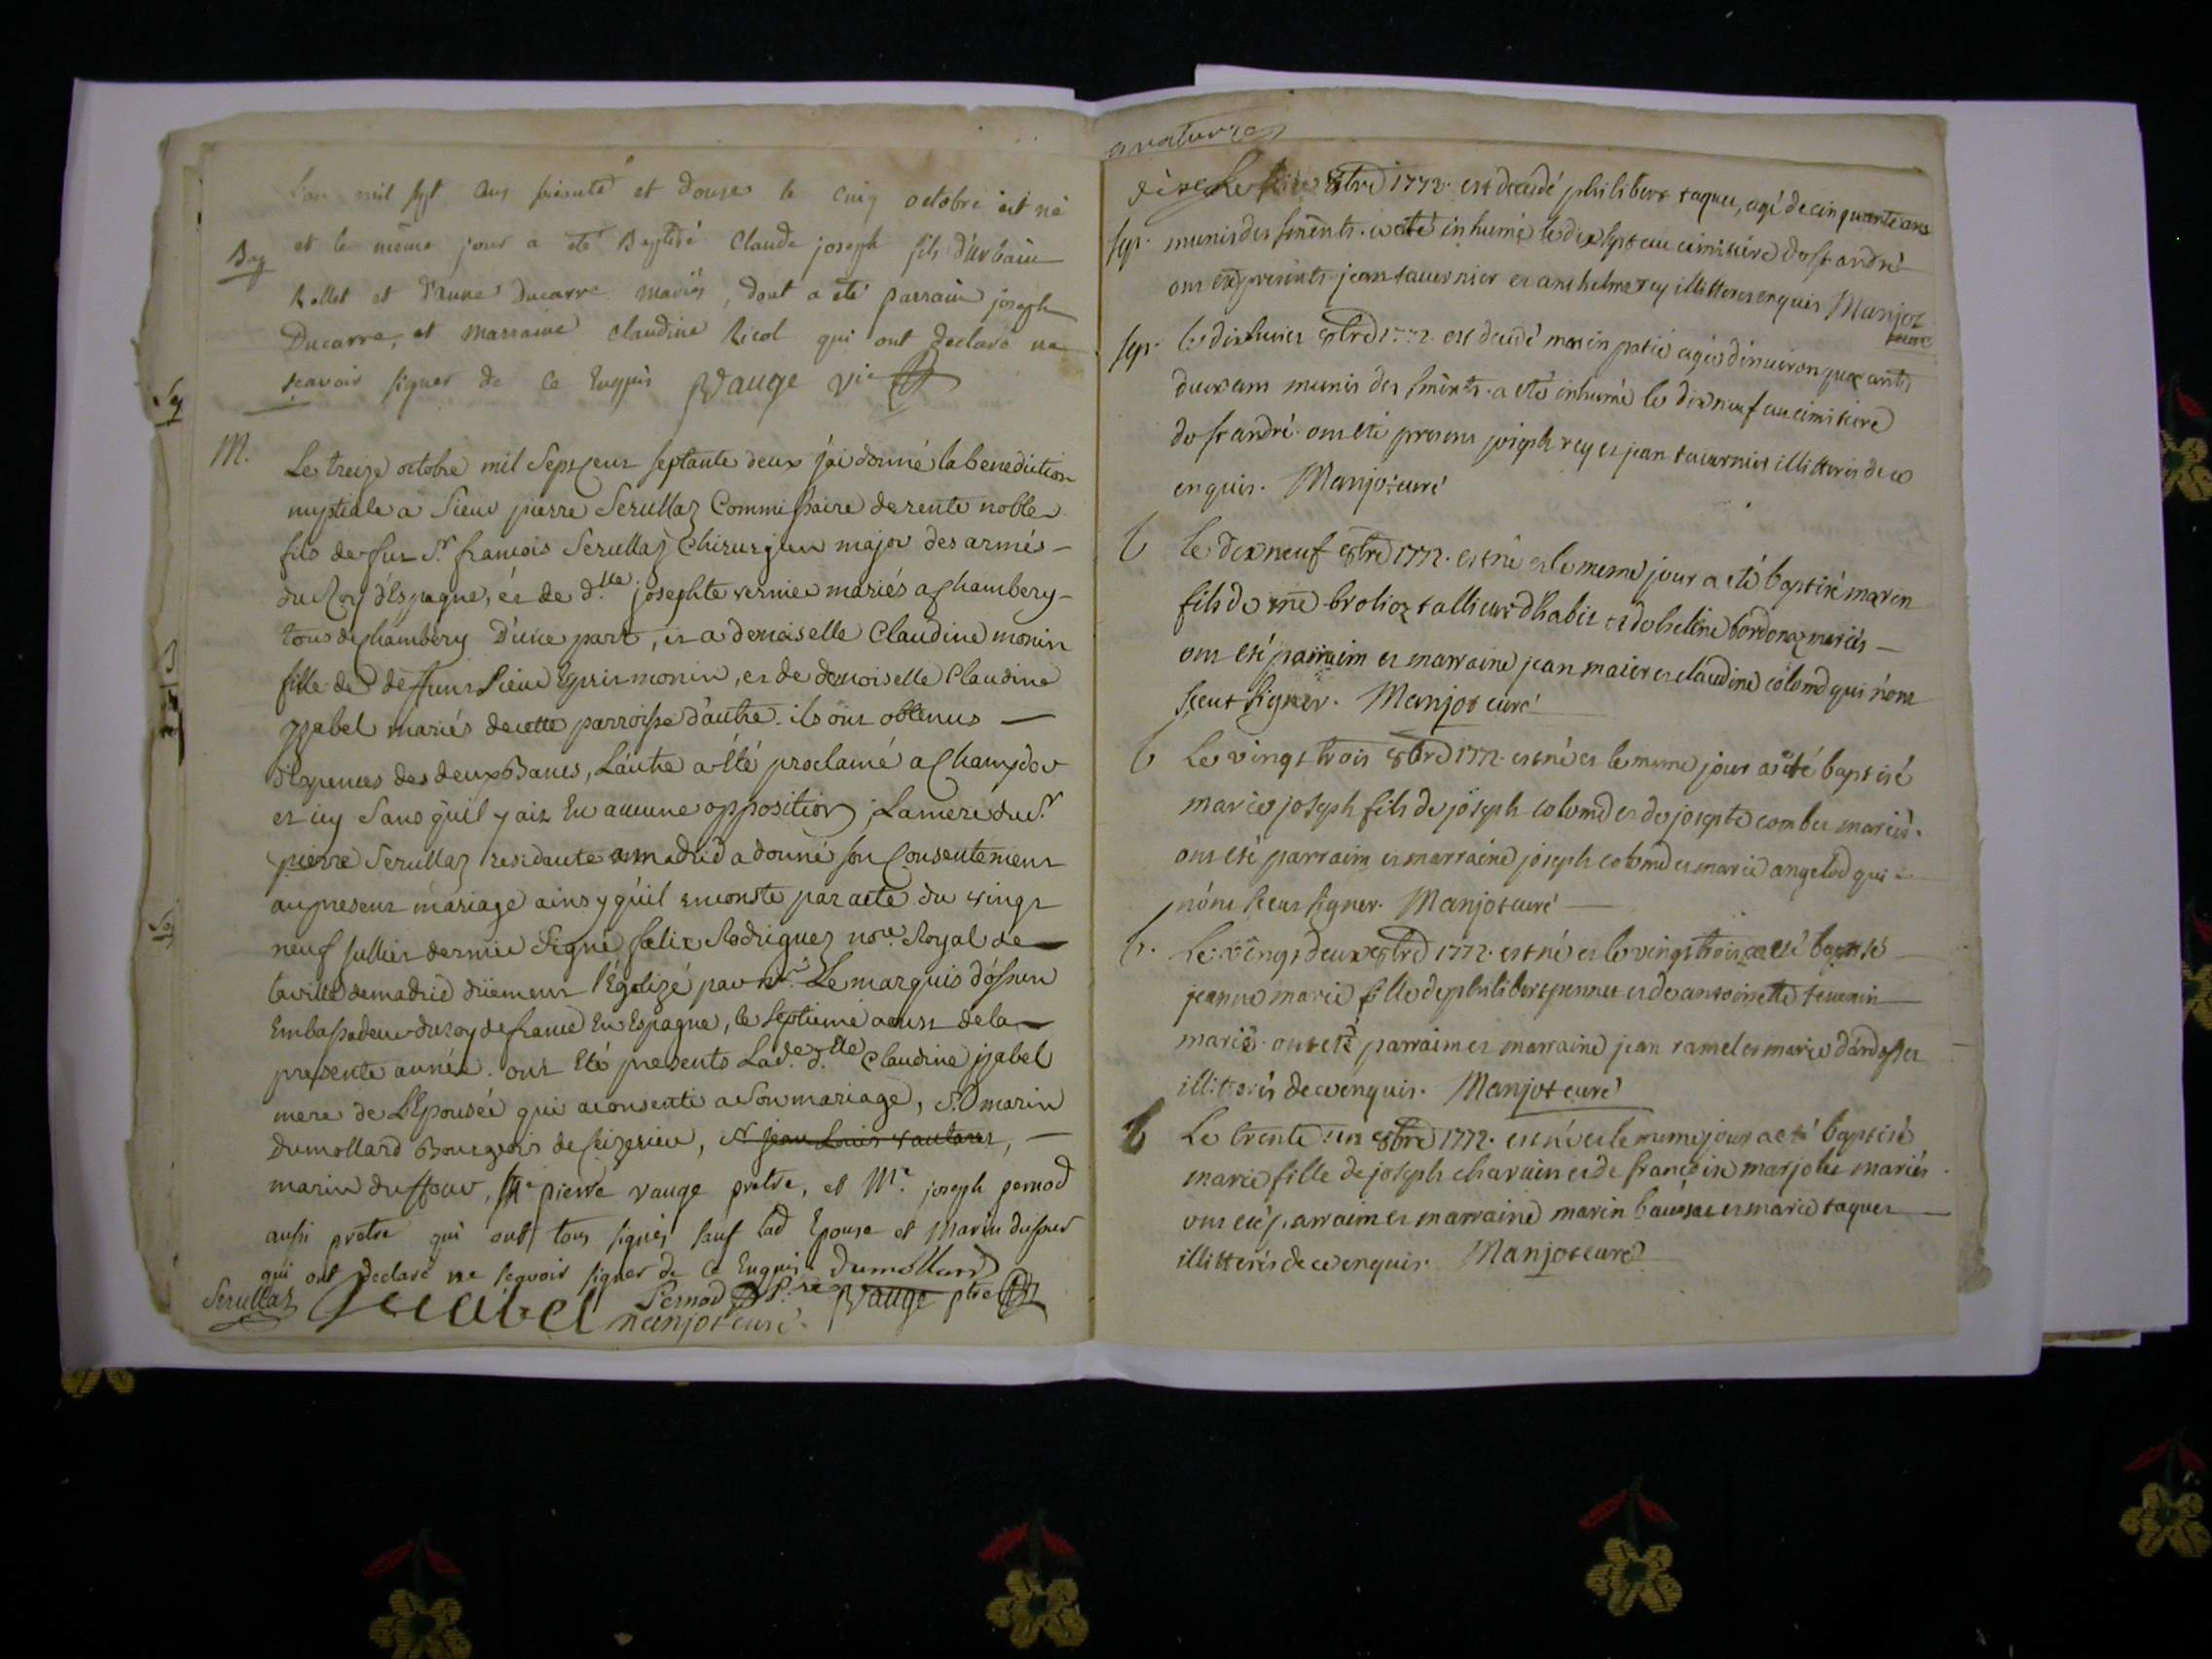 L'an mil sept cens soixante et douze le cinq octobre est né
Bap et le même jour a été Baptisé Claude joseph fils d'urbain
Rollet et d'anne Ducarre mariés, dont a été parrain joseph
Ducarre, et marraine Claudine Ricol qui ont declaré ne
scavoir signer de ce Enquis Vauge vic
M. Le treize octobre mil Sept Cent septante deux j'ai donné la benediction
nuptiale a Sieur pierre Serullaz Commissaire de rente noble
fils de feu Sr. françois Serullaz Chirurgien major des armés
du Roy d'Espagne, et de dlle. josephte vernier mariés a Chambery
tous de chambery D'une part, et a demoiselle Claudine monin
fille de deffunt Sieur Esprit monin, et de demoiselle Claudine
yzabel mariés de cette parroisse d'autre. ils ont obtenus
dispences des deux Bancs, L'autre a été proclamé a Champdor
et icy Sans qu'il y ait Eu aucune opposition, La mere du Sr.
pierre Serullaz residante a madrid a donné son Consentement
au present mariage ainsy qu'il en conste par acte du vingt
neuf juillet dernier Signé felix Rodriguez nore. Royal de
la ville de madrid duement l'égalizé par Mr. Le marquis d'ossun
Embassadeur du roy de france En Espagne, le septieme aoust de la
presente année. ont été presents La de. dlle Claudine yzabel
mere de L'Epousée qui a consenti a Son mariage, Sr marin
Dumollard Bourgeois de seizerieu, Sr jean Louis
marin duffour, Mre pierre vauge pretre, et Mre. joseph pernod
aussi pretre qui ont tous signés sauf lad Epouse et Marin dufour
qui ont declaré ne scavoir signer de ce Enquis Dumollard
Serullaz yzabel Pernod Vauge ptre
manjot curé.
Le seize 8bre 1772. est decedé philibert taquet, agé de cinquante ans
sep. munis des sments. a eté inhumé le dix sept au cimitiere de st andré
ont eté presents jean tavernier et anthelme rey illitteres enquis Manjot
curé
sep. le dix huict 8bre 1772. est decedé marin patié agé d'environ quarante
deux ans munis des sments. a eté inhumé le dix neuf au cimitiere
de st andré. ont eté presens joseph rey et jean tavernier illitterés de ce
enquis. Manjot curé
b le dix neuf 8bre 1772. est né et le meme jour a eté baptisé marin
fils de brolioz tallieur d'habit et de helene bordonaz mariés
ont eté parraim et marraine jean maier et claudine colomd qui n'ont
sceut signer. Manjot curé
b Le vingt trois 8bre 1772. est né et le meme jour a eté baptisé
marie joseph fils de joseph colomd et de josepte combet mariés.
ont eté parraim et marraine joseph colomd et marie angelod qui
n'ont sceut signer. Manjot curé
b. Le vingt deux 8bre 1772. est né et le vingt trois a eté baptisé
jeanne marie fille de philibert pennet et de antoinette tevenin
mariés. ont eté parraim et marraine jean ramel et marie
illitterés de ce enquis. Manjot curé
b Le trente un 8bre 1772. est né et le meme jour a eté baptisé
marie fille de joseph charvin et de françoise marjolet mariés
ont eté parraim et marraine marin et marie taquet
illitterés de ce enquis. Manjot curé